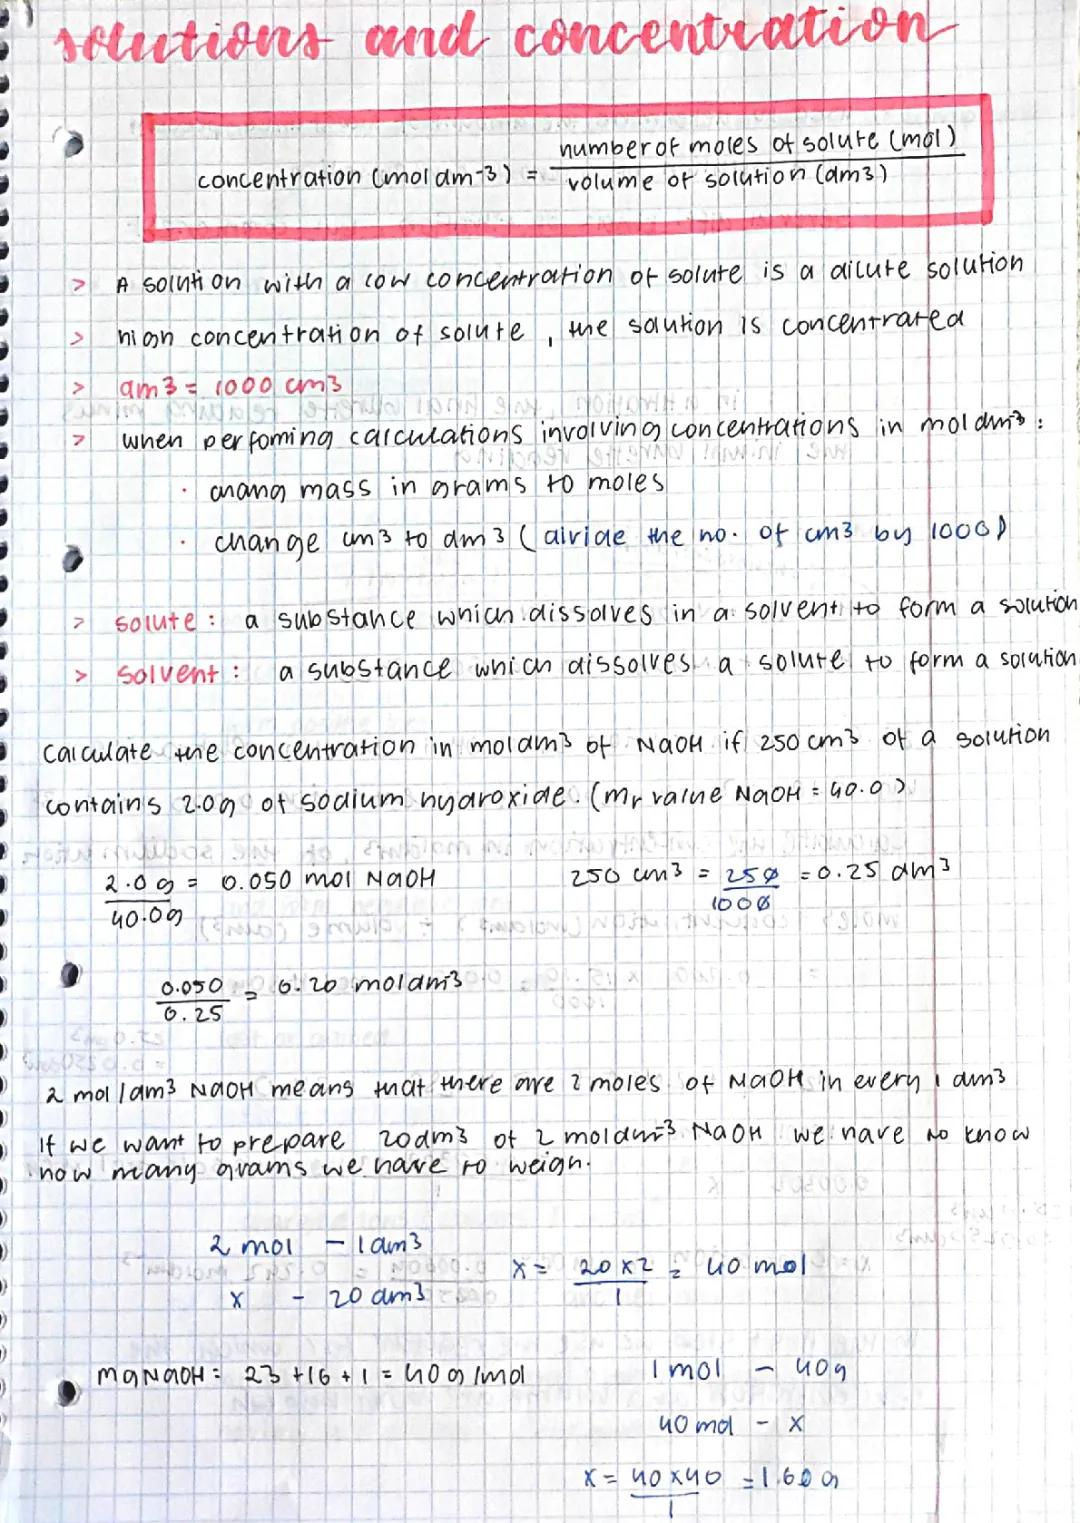 solutions and concentration
number of moles of solute (mol)
concentration (mol dm-3) =
volume of solution (dm3)
> A solution with a low concentration of solute is a dilute solution
> high concentration of solute, the solution is concentrated
> dm3 = 1000 cm3
> when perfoming calculations involving concentrations in mol dm-3 :
· chang mass in grams to moles
· change cm3 to dm3 (divide the no. of cm3 by 1000)
> solute : a substance which dissolves in a solvent to form a solution
> solvent : a substance which dissolves a solute to form a solution
Calculate the concentration in moldm3 of NaOH if 250 cm3 of a solution
contains 2.0g of sodium hydroxide. (mr value NaOH = 40.0)
2.0g = 0.050 mol NaOH 250 cm3 = 250 = 0.25 dm3
40.0g 1000
0.050 = 0.20 moldm-3
0.25
2 mol / dm3 NaOH means that there are 2 moles of NaOH in every 1 dm3
If we want to prepare 20dm3 of 2 moldm-3 NaOH we have to know
how many grams we have to weigh.
2 mol - 1 dm3
x = 20 x 2 = 40 mol
x - 20 dm3 1
NaOH = 23 + 16 + 1 = 40 g /mol 1 mol - 40g
40 mol - x
x = 40 x 40 = 1.60 g
1